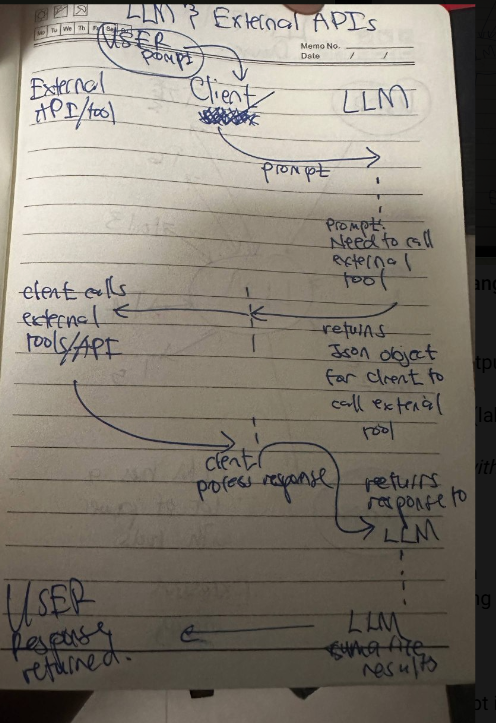 LLM & External APIs
Mo Tu We Th Fr Sa Su
Memo No.
Date / /
USER
pompt
External
API/tool
Client
LLM
prompt
prompt:
Need to call
external
tool
client calls
external
tools/API
returns
Json object
for client to
call external
tool
client
process response
returns
response to
LLM
USER
Response
returned.
LLM
sumarize
results